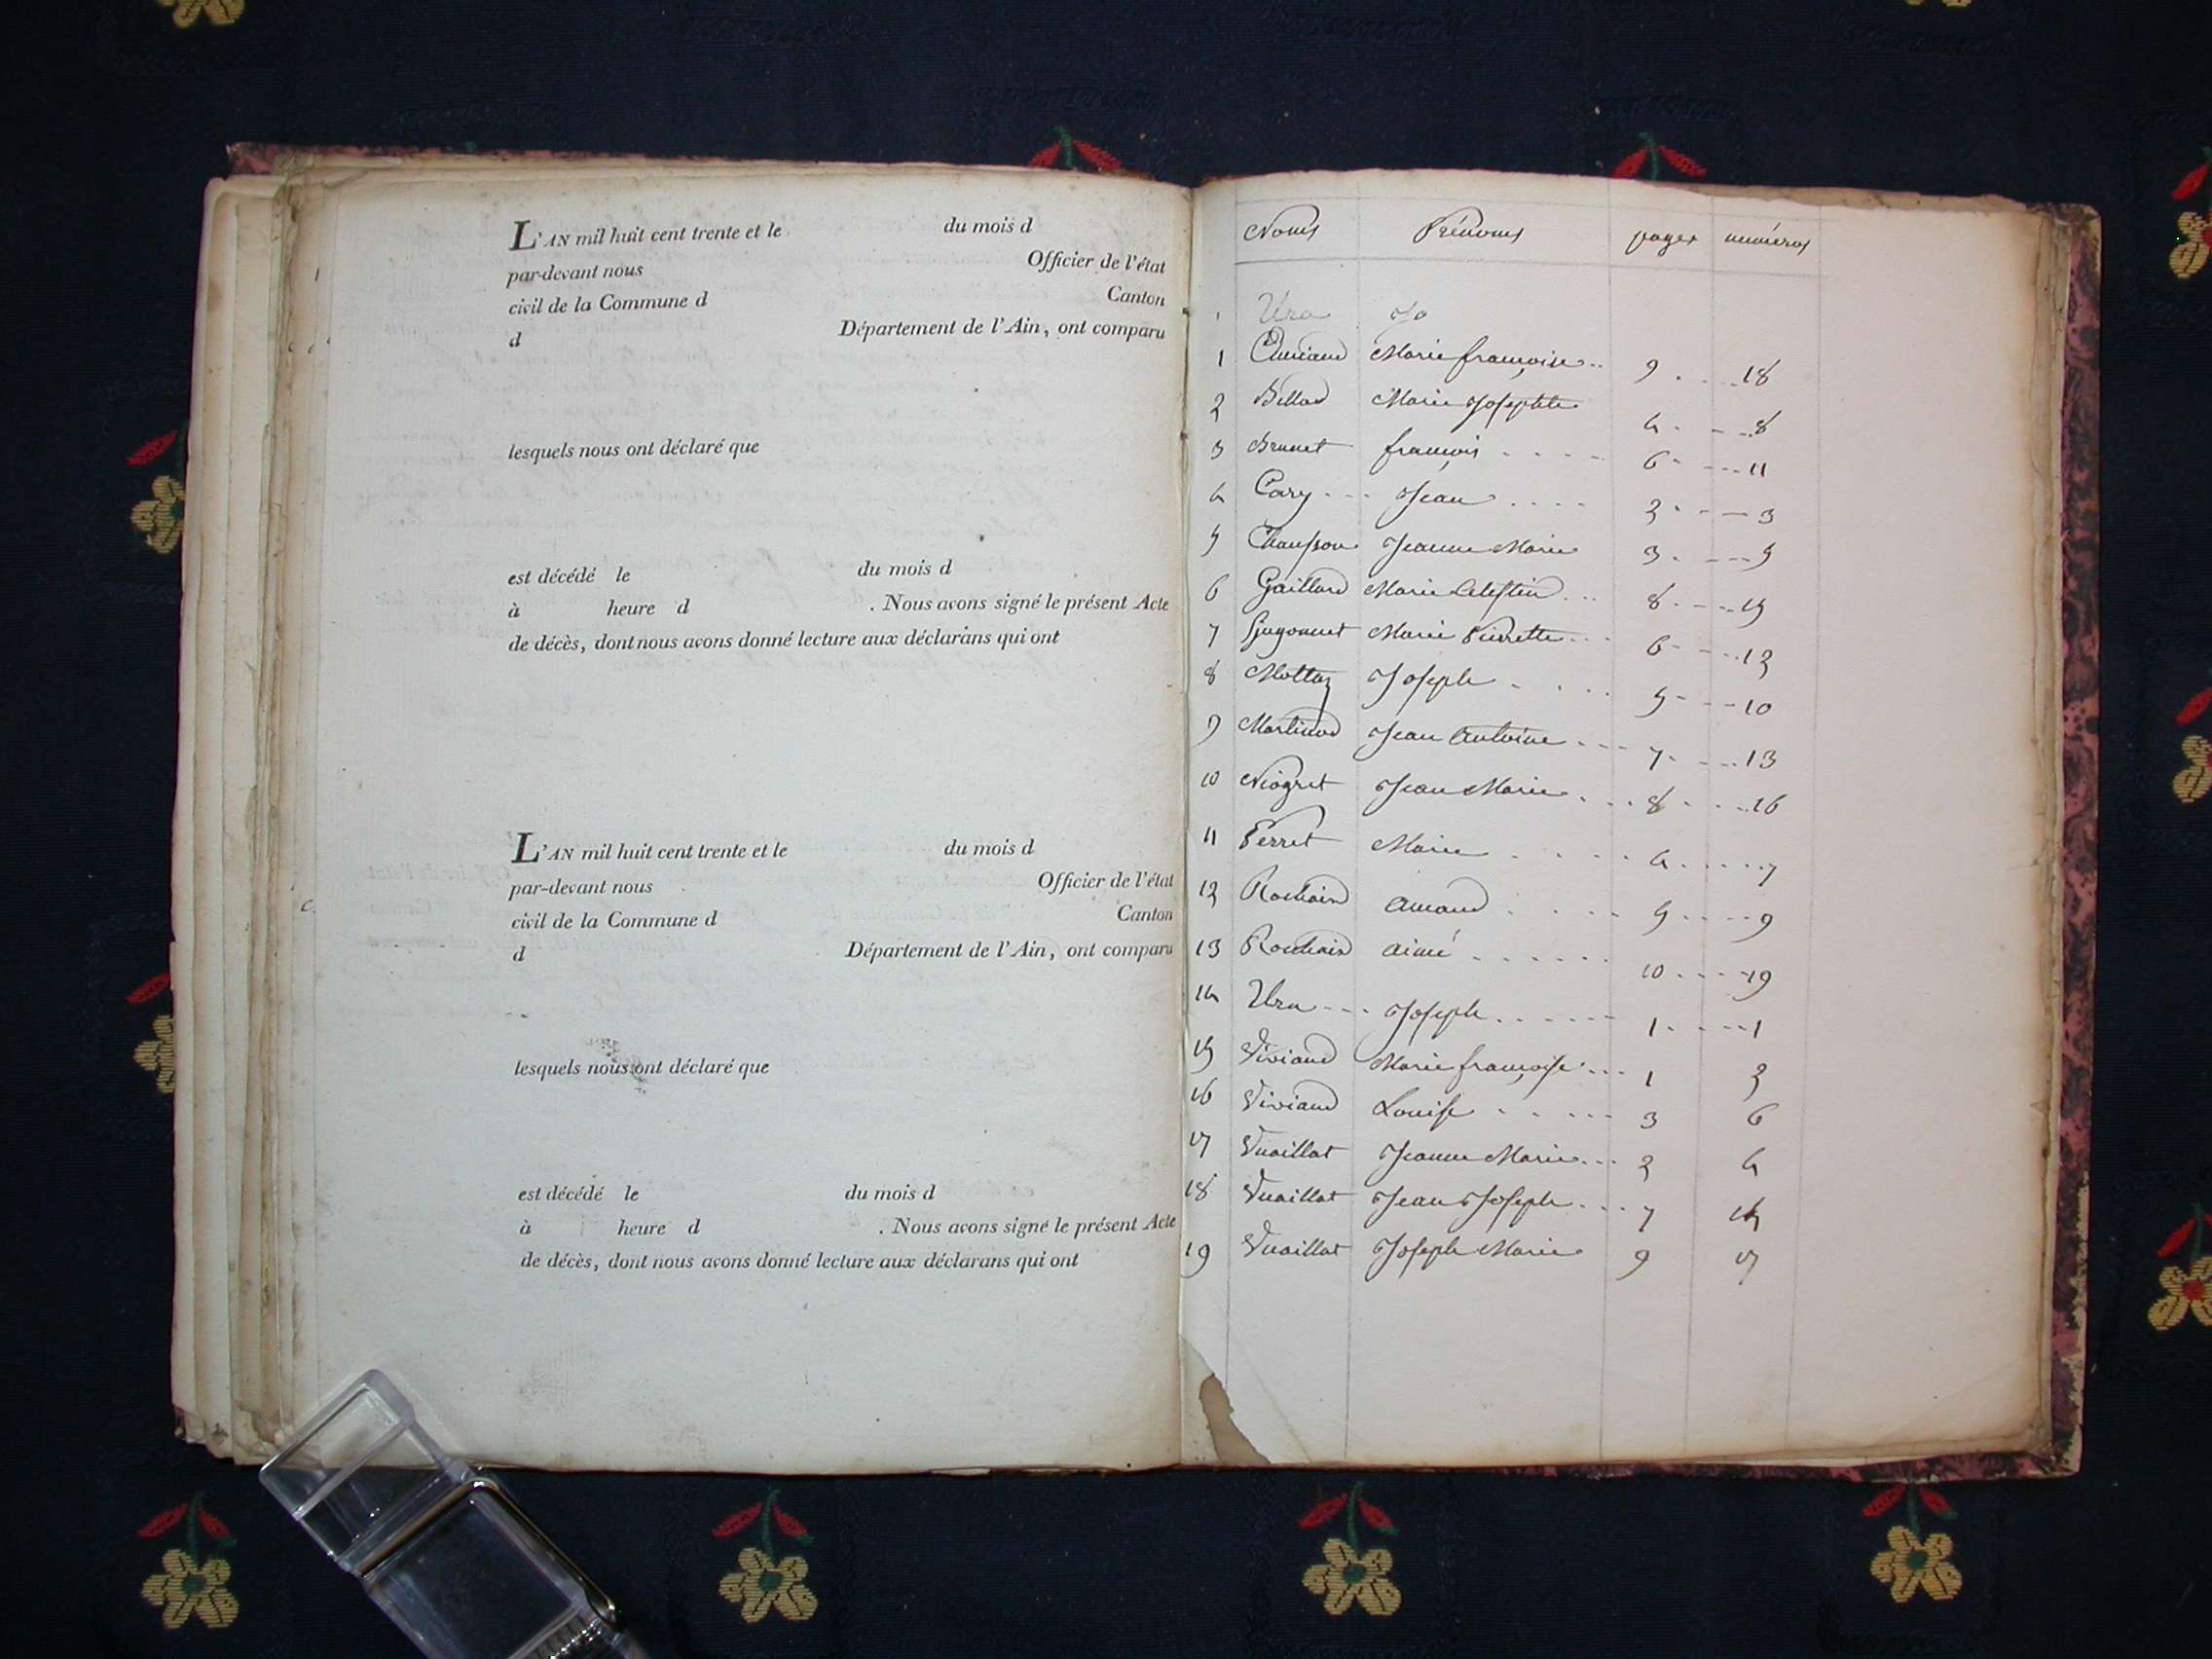 L'AN mil huit cent trente et le du mois d
par-devant nous Officier de l'état
civil de la Commune d Canton
d Département de l'Ain, ont comparu
lesquels nous ont déclaré que
est décédé le du mois d
à heure d . Nous avons signé le présent Acte
de décès, dont nous avons donné lecture aux déclarans qui ont
L'AN mil huit cent trente et le du mois d
par-devant nous Officier de l'état
civil de la Commune d Canton
d Département de l'Ain, ont comparu
lesquels nous ont déclaré que
est décédé le du mois d
à heure d . Nous avons signé le présent Acte
de décès, dont nous avons donné lecture aux déclarans qui ont
Noms Prénoms pages numéros
Jo
1 Marie françoise 9 18
2 Billod Marie Josephte 4 8
3 Brunet françois 6 11
4 Cary Jean 2 3
5 Jeanne Marie 3 5
6 Gaillard Marie Celestin 8 15
7 Gugonnet Marie Pierrette 6 12
8 Mottaz Joseph 5 10
9 Martinod Jean Antoine 7 13
10 Niogret Jean Marie 8 16
11 Perret Marie 4 7
12 Rochaix Amand 5 9
13 Rochaix Aimé 10 19
14 Joseph 1 1
15 Viviand Marie françoise 1 2
16 Viviand Louise 3 6
17 Vuaillat Jeanne Marie 2 4
18 Vuaillat Jean Joseph 7 14
19 Vuaillat Joseph Marie 9 17